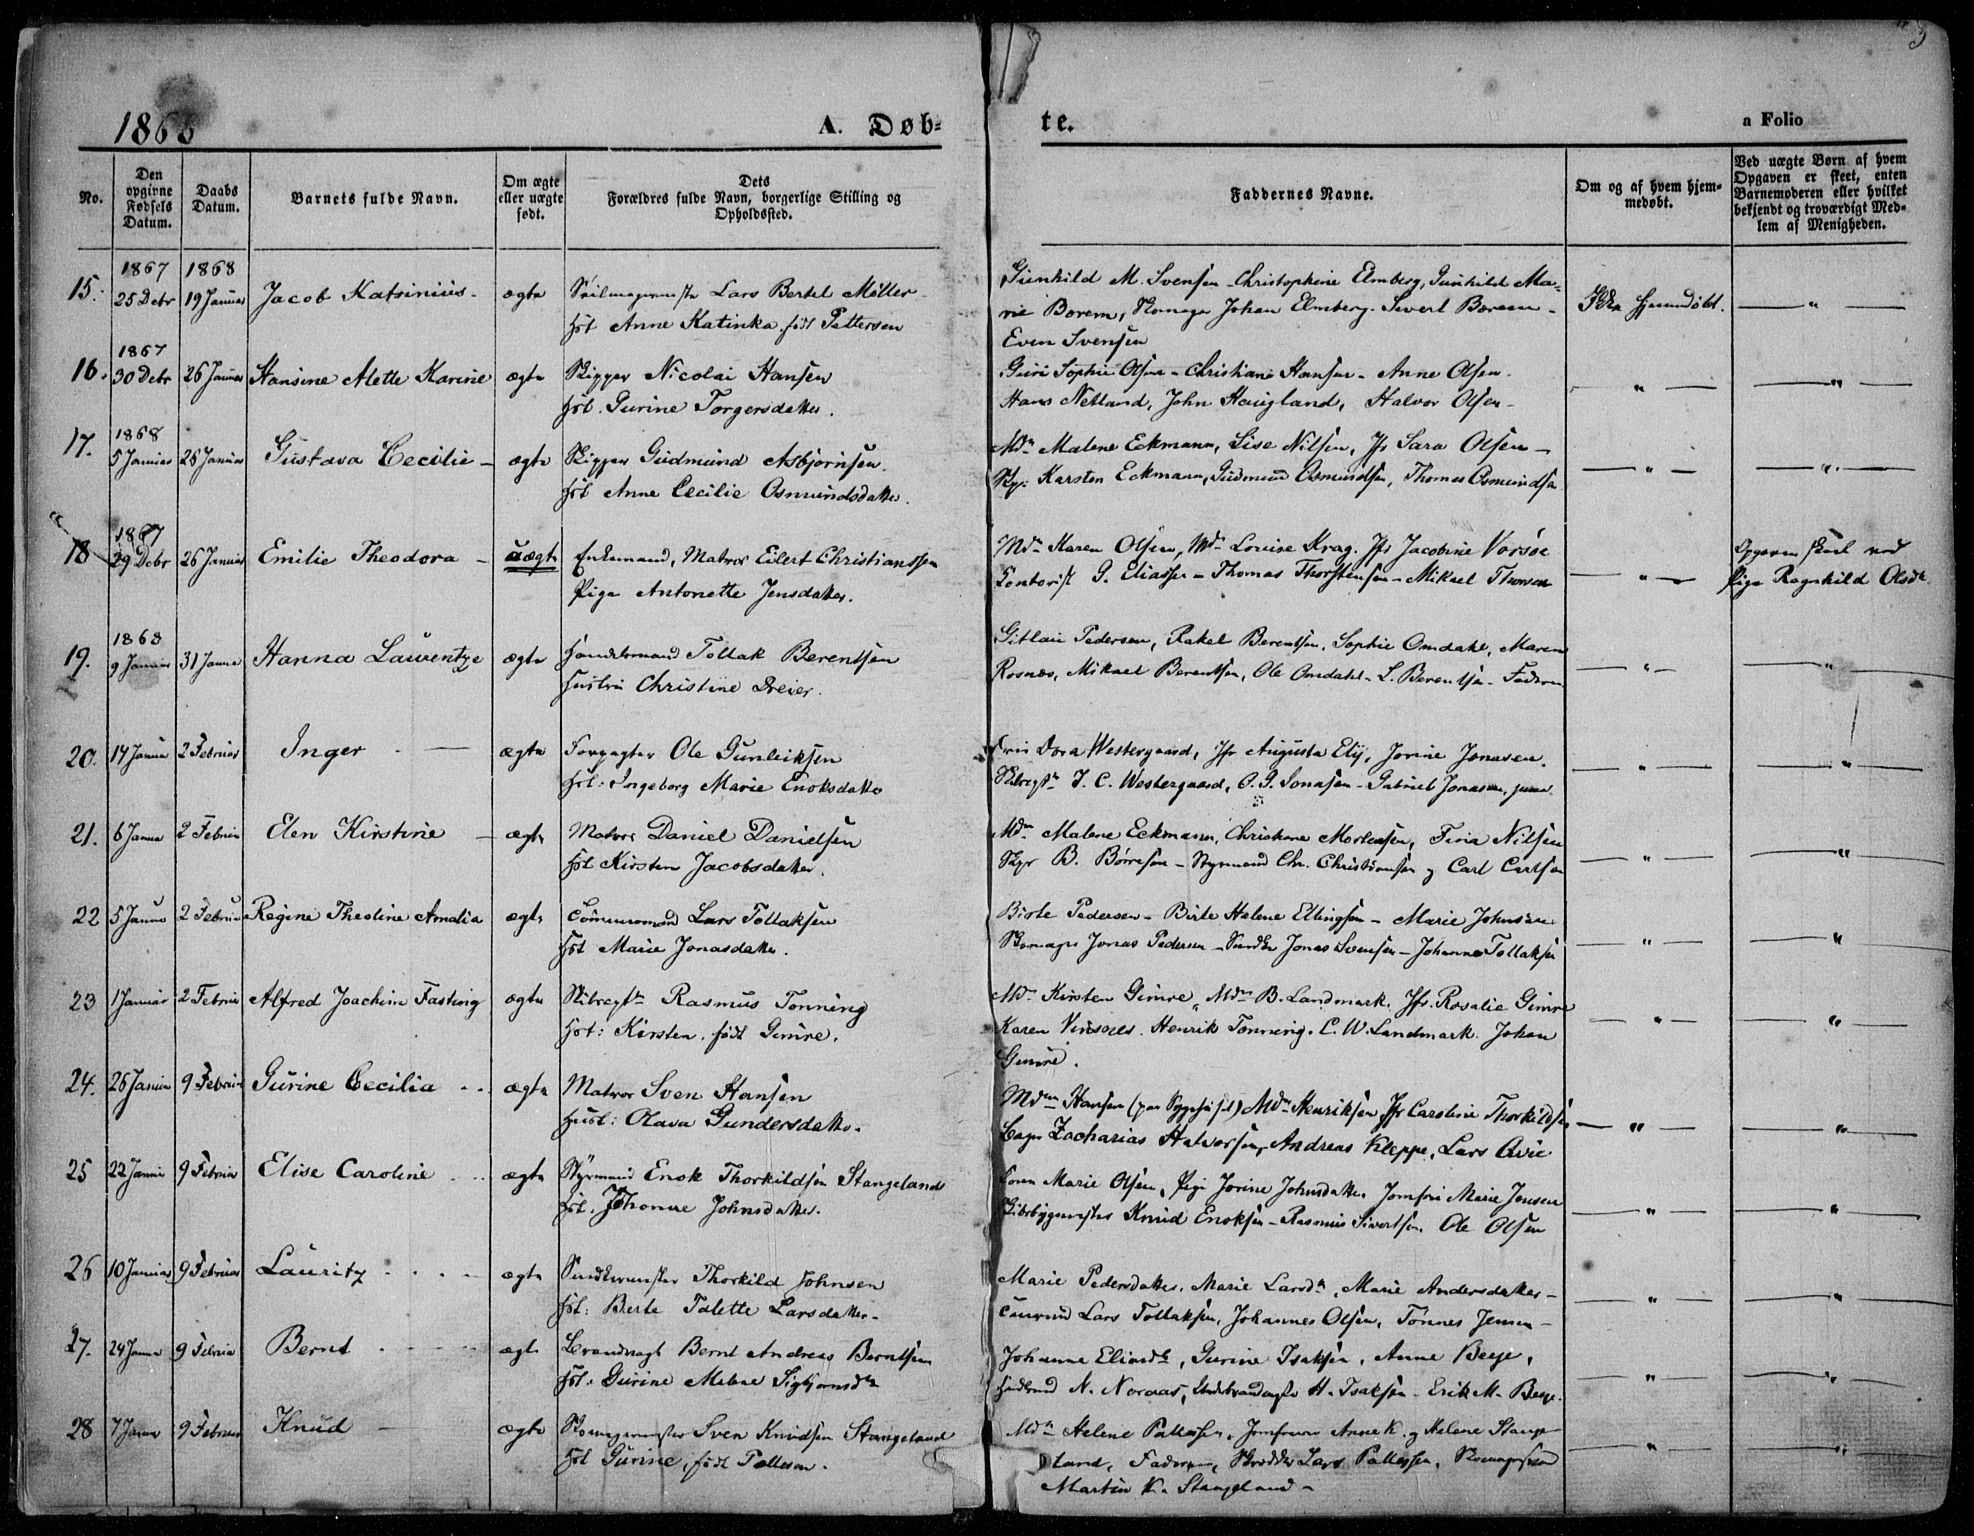 1868
A. Døb=
te.
a Folio
3
No.
Den opgivne Fødsels Datum.
Daabs Datum.
Barnets fulde Navn.
Om ægte eller uægte født.
Dets Forældres fulde Navn, borgerlige Stilling og Opholdssted.
Faddernes Navne.
Om og af hvem hjemmedøbt.
Ved uægte Børn af hvem Opgaven er skeet, enten Barnemoderen eller hvilket bekjendt og troværdigt Medlem af Menigheden.
1867 1868
15. 25 Debr 19 Januar Jacob Katinius - ægte Seilmagermster Lars Bertel Møller
Hst Anne Katinka, født Pettersen
Gunhild M. Svensen - Christophine Elmberg, Gunhild Ma-
rie Borem, Skomager Johan Elmberg. Sivert Boreen -
Even Svensen
Ikke hjemmedøbt. — " —
1867
16. 30 Debr 26 Januar Hansine Mette Karine ægte Skipper Nicolai Hansen
Hst. Gurine Torgersdatter.
Guri Sophie Olsen - Christiane Hansen - Anne Olsen.
Hans Netland, John Haugland, Halvor Olsen -
— " — — " —
1868
17. 5 Januar 26 Januar Gustava Cecilie - ægte Skipper Gudmund Asbjørnsen.
Hst Anne Cecilie Osmundsdatter.
Mdm Malene Eckmann, Lise Nilsen, Jfr Sara Olsen -
Skp: Karsten Eckmann, Gudmund Osmundsen, Thomas Osmundsen
— " — — " —
1867
18 29 Debr 26 Januar Emilie Theodora - uægte Enkemand, Matros Eilert Christianssen
Pige Antonette Jensdatter.
Mdm Karen Olsen, Mdm Louise Krag. Jfr Jacobine Vorsøe
Contorist G. Eliassen - Thomas Thorstensen - Mikael Thorsen
— " —
Opgaven skeet ved
Pige Ragnhild Olsdtr
1868
19. 9 Januar 31 Januar Hanna Laurentze ægte Handelsmand Tollak Berentsen
Hustru Christine Dreier.
Gitlau Pedersen, Rakel Berentsen. Sophie Omdahl, Maren
Rosnes, Mikael Berentsen, Ole Omdahl - L. Berentsen - Faderen
— " — — " —
20. 14 Januar 2 Februar Inger - — ægte Forpagter Ole Gunleiksen
Hst: Ingeborg Marie Enoksdatter
Fru Dora Westergaard, Jfr Augusta Ely, Jorine Jonasen.
Skibregtr J. C. Westergaard, O. G. Jonasen - Gabriel Jonasen, junr.
— " — — " —
21. 6 Januar 2 Februar Elen Kirstine - ægte Matros Daniel Danielsen
Hst Kirsten Jacobsdatter.
Mdm Malene Eckmann, Christiane Mortensen, Tina Nilsen
Skpr B. Børesen - Styrmand Chr. Christiansen og Carl Carlsen
— " — — " —
22 5 Januar 2 Februar Regine Thestine Amalia ægte Lars Tollaksen
Hst Marie Jonasdatter.
Birte Pedersen - Birte Helene Ellingsen - Marie Johnsen
Skomagr Jonas Pedersen - Snedker Jonas Svensen - Johannes Tollaksen
— " — — " —
23 1 Januar 2 Februar Alfred Joachim Fasting ægte Skibregtr Rasmus Tonning
Hst: Kirsten, født Gimre.
Mdm Kirsten Gimre, Mdm B. Landmark. Jfr. Rosalie Gimre
Karen Henrik Tonning. C. W. Landmark. Johan
Gimre.
— " — — " —
24. 26 Januar 9 Februar Gurine Cecilia - - ægte Matros Sven Hansen
Hust: Olava Gundersdatter.
Mdm Hansen (paa Sygehuset) Mdm Henriksen Jfr Caroline Thorkildsen
Zacharias Halvorsen, Andreas Kleppe, Lars
— " — — " —
25 22 Januar 9 Februar Elise Caroline - - ægte Styrmand Enok Thorkildsen Stangeland
Hst. Johanne Johnsdatter.
Marie Olsen, Pige Jorine Johnsdatter. Jomfru Marie Jensen
Skibsbygmester Knud Enoksen - Rasmus Sivertsen. Ole Olsen
— " — — " —
26 10 Januar 9 Februar Lauritz - - - - ægte Snedkermester Thorkild Johnsen
Hst: Berte Talette Larsdatter -
Marie Pedersdatter. Marie Larsdtr, Marie Andersdatter -
Lars Tollaksen, Johannes Olsen, Tønnes Jensen -
— " — — " —
27. 24 Januar 9 Februar Bernt - - - - ægte Brandvagt Bernt Andreas Berntsen
Hst: Gurine Malene Sigbjørnsdtr
Johanne Eliasdtr, Gurine Isaksen, Anne Berge,
N. Noraas, H. Isaksen - Erik M. Berge.
— " — — " —
28 7 Januar 9 Februar Knud — ægte Skomagermester Sven Knudsen Stangeland
Hst Gurine, født Pallesen.
Mdm Helene Pallesen, Jomfruer Anne K. og Helene Stange-
land, Faderen, Skrædder Lars Pallesen, Skomagersvend
Martin K. Stangeland -
— " — — " —